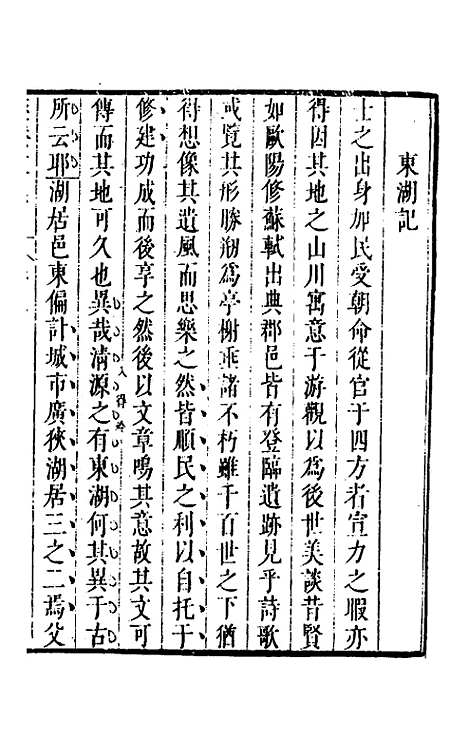 東湖記
士之出身加民受朝命從官于四方者宣力之暇亦
得因其地之山川寓意于游觀以為後世美談昔賢
如歐陽修蘇軾出典郡邑皆有登臨遺跡見乎詩歌
或覽其形勝剏為亭榭垂諸不朽雖千百世之下猶
得想像其遺風而思樂之然皆順民之利以自托于
修建功成而後享之然後以文章鳴其意故其文可
傳而其地可久也異哉清源之有東湖何其異于古
入得冷
所云耶湖居邑東偏計城市廣狹湖居三之二焉父